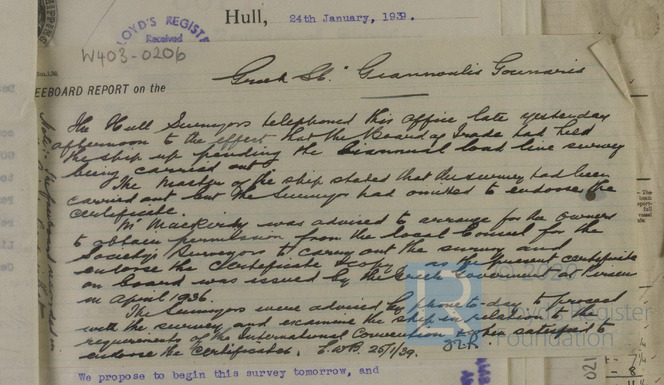 Hull, 24th January, 1939.
LOYD'S REGISTE
Received
W403-0206
EEBOARD REPORT on the
Greek St. "Giannoulis Gounaris
The Hull Surveyors telephoned this office late yesterday
afternoon to the effect that the Board of Trade had held
the ship up pending the biannual load line survey
being carried out.
The Master of the ship stated that the survey had been
carried out but the Surveyor had omitted to endorse the
certificate.
Mr Mackirdy was advised to arrange for the owners
to obtain permission from the local Consul for the
Society's Surveyors to carry out the survey and
endorse the certificate as the present certificate
on board was issued by the Greek Government at
in April 1936.
The Surveyors were advised by phone to-day to proceed
with the survey and examine the ship in relation to the
requirements of the International Convention when satisfied to
endorse the certificates. 25/1/39.
We propose to begin this survey tomorrow, and
© 2020
Lloyd's Register
Foundation
LR